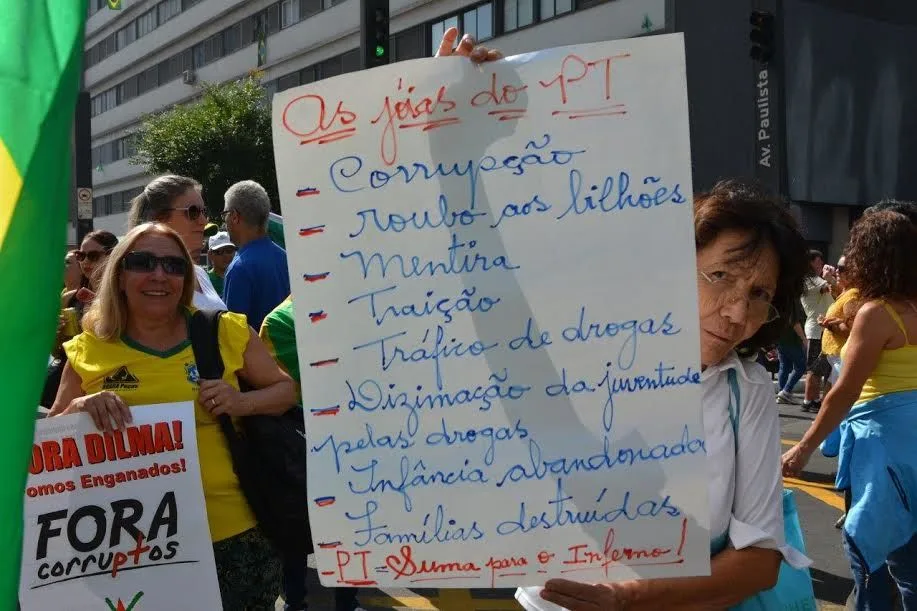 As jóias do PT
- Corrupção
- roubo aos bilhões
- Mentira
- Traição
- Tráfico de drogas
- Dizimação da juventude
pelas drogas
- Infância abandonada
- Famílias destruídas
- PT - Suma para o Inferno!
ORA DILMA!
omos Enganados!
FORA
corruptos
Av. Paulista